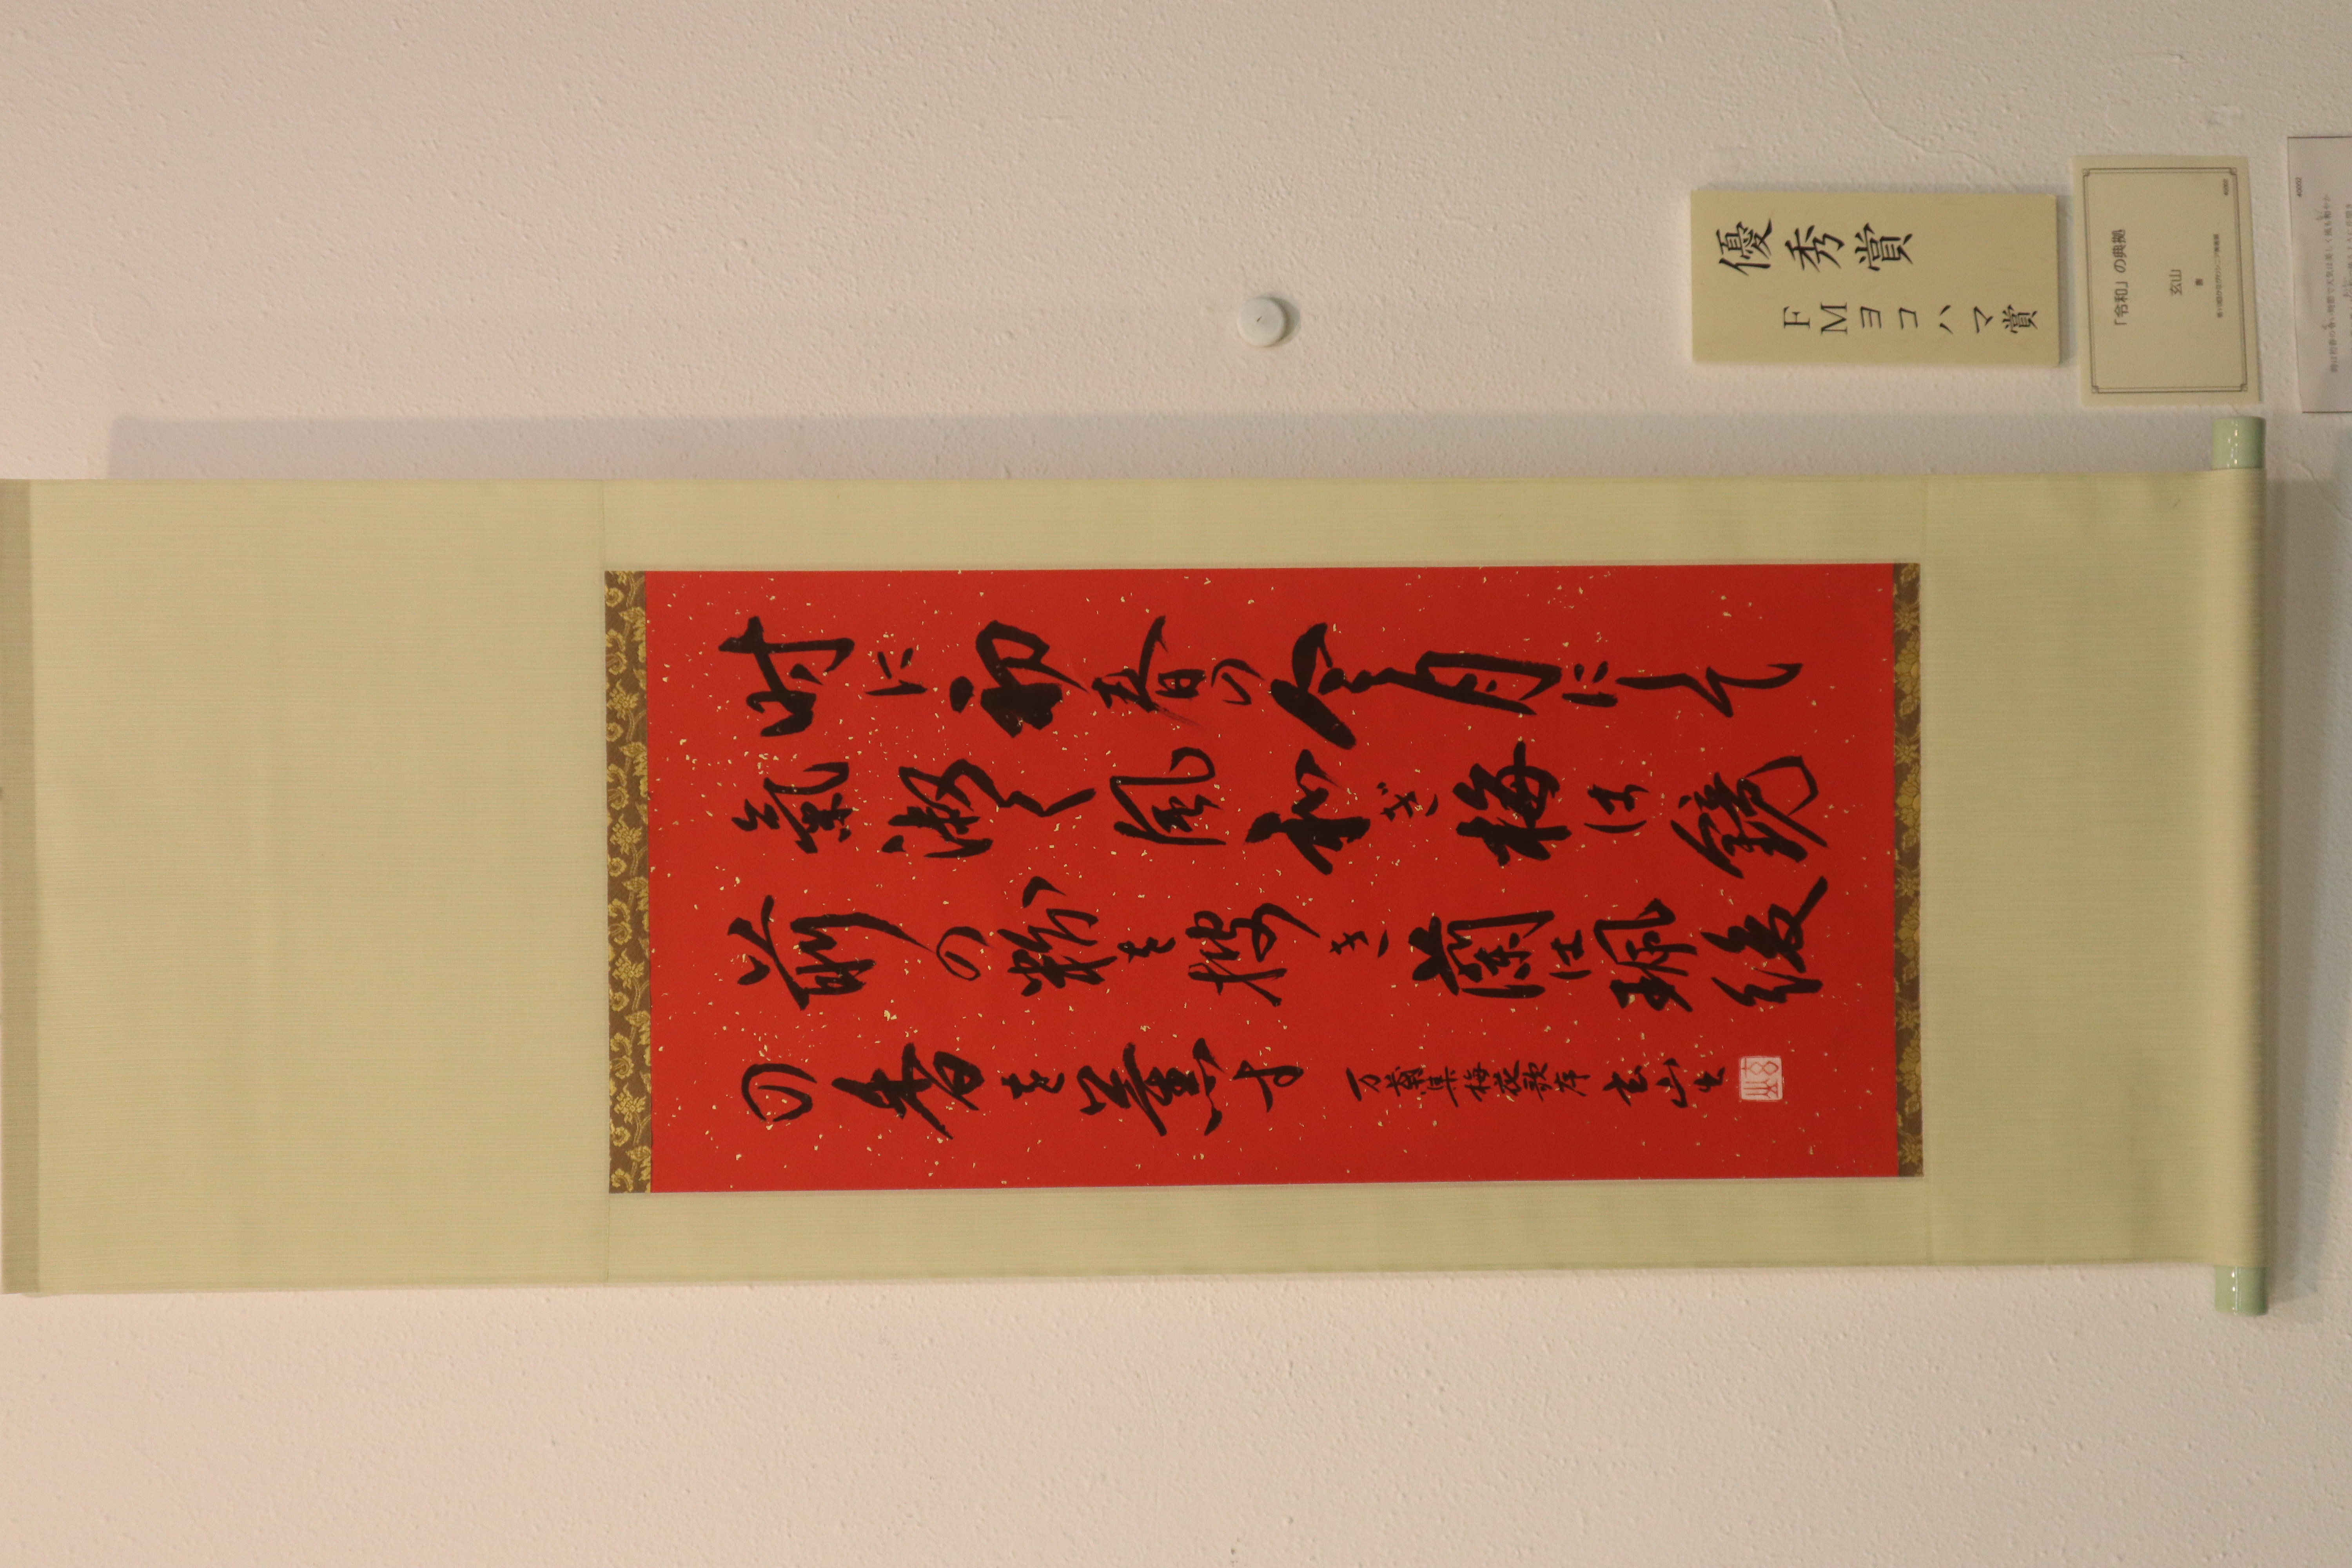 時に初春の令月にして
氣淑く風和ぎ梅は鏡
前の粉を披き蘭は珮後
の香を薫す
万葉集梅花歌序 玄山生
優秀賞
FMヨコハマ賞
「令和」の典拠
玄山
書